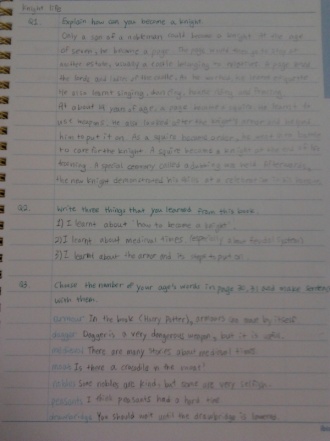 Knight life
Q1. Explain how can you become a knight.
Only a son of a nobleman could become a knight. At the age
of seven, he became a page. The page would then go to stay at
other estate, usually a castle belonging to
the lords and ladies of the castle. As he worked, he learnt
He also learnt singing, dancing, horse riding and fencing.
At about 14 years of age, a page became a squire. He learnt to
use weapons. He also looked after the knight's armour and helped
him to put it on. As a squire became older, he went into battle
to care for the knight. A squire became a knight at the end of his
training. A special ceremony called a dubbing was held. Afterwards,
the new knight demonstrated his skills at a
Q2. Write three things that you learned from this book.
1) I learnt about 'how to become a knight'.
2) I learnt about medieval times (especially about feudal system)
3) I learnt about the armor and its ways to put on.
Q3. Choose the number of your age's words in page 30, 31 and make sentences
with them.
armour In the book (Harry Potter), armours can move by itself.
dagger Dagger is a very dangerous weapon, but it is useful.
medieval There are many stories about medieval times.
moat Is there a crocodile in the moat?
nobles Some nobles are kind, but some are very selfish.
peasants I think peasants had a hard time.
drawbridge You should wait until the drawbridge is lowered.